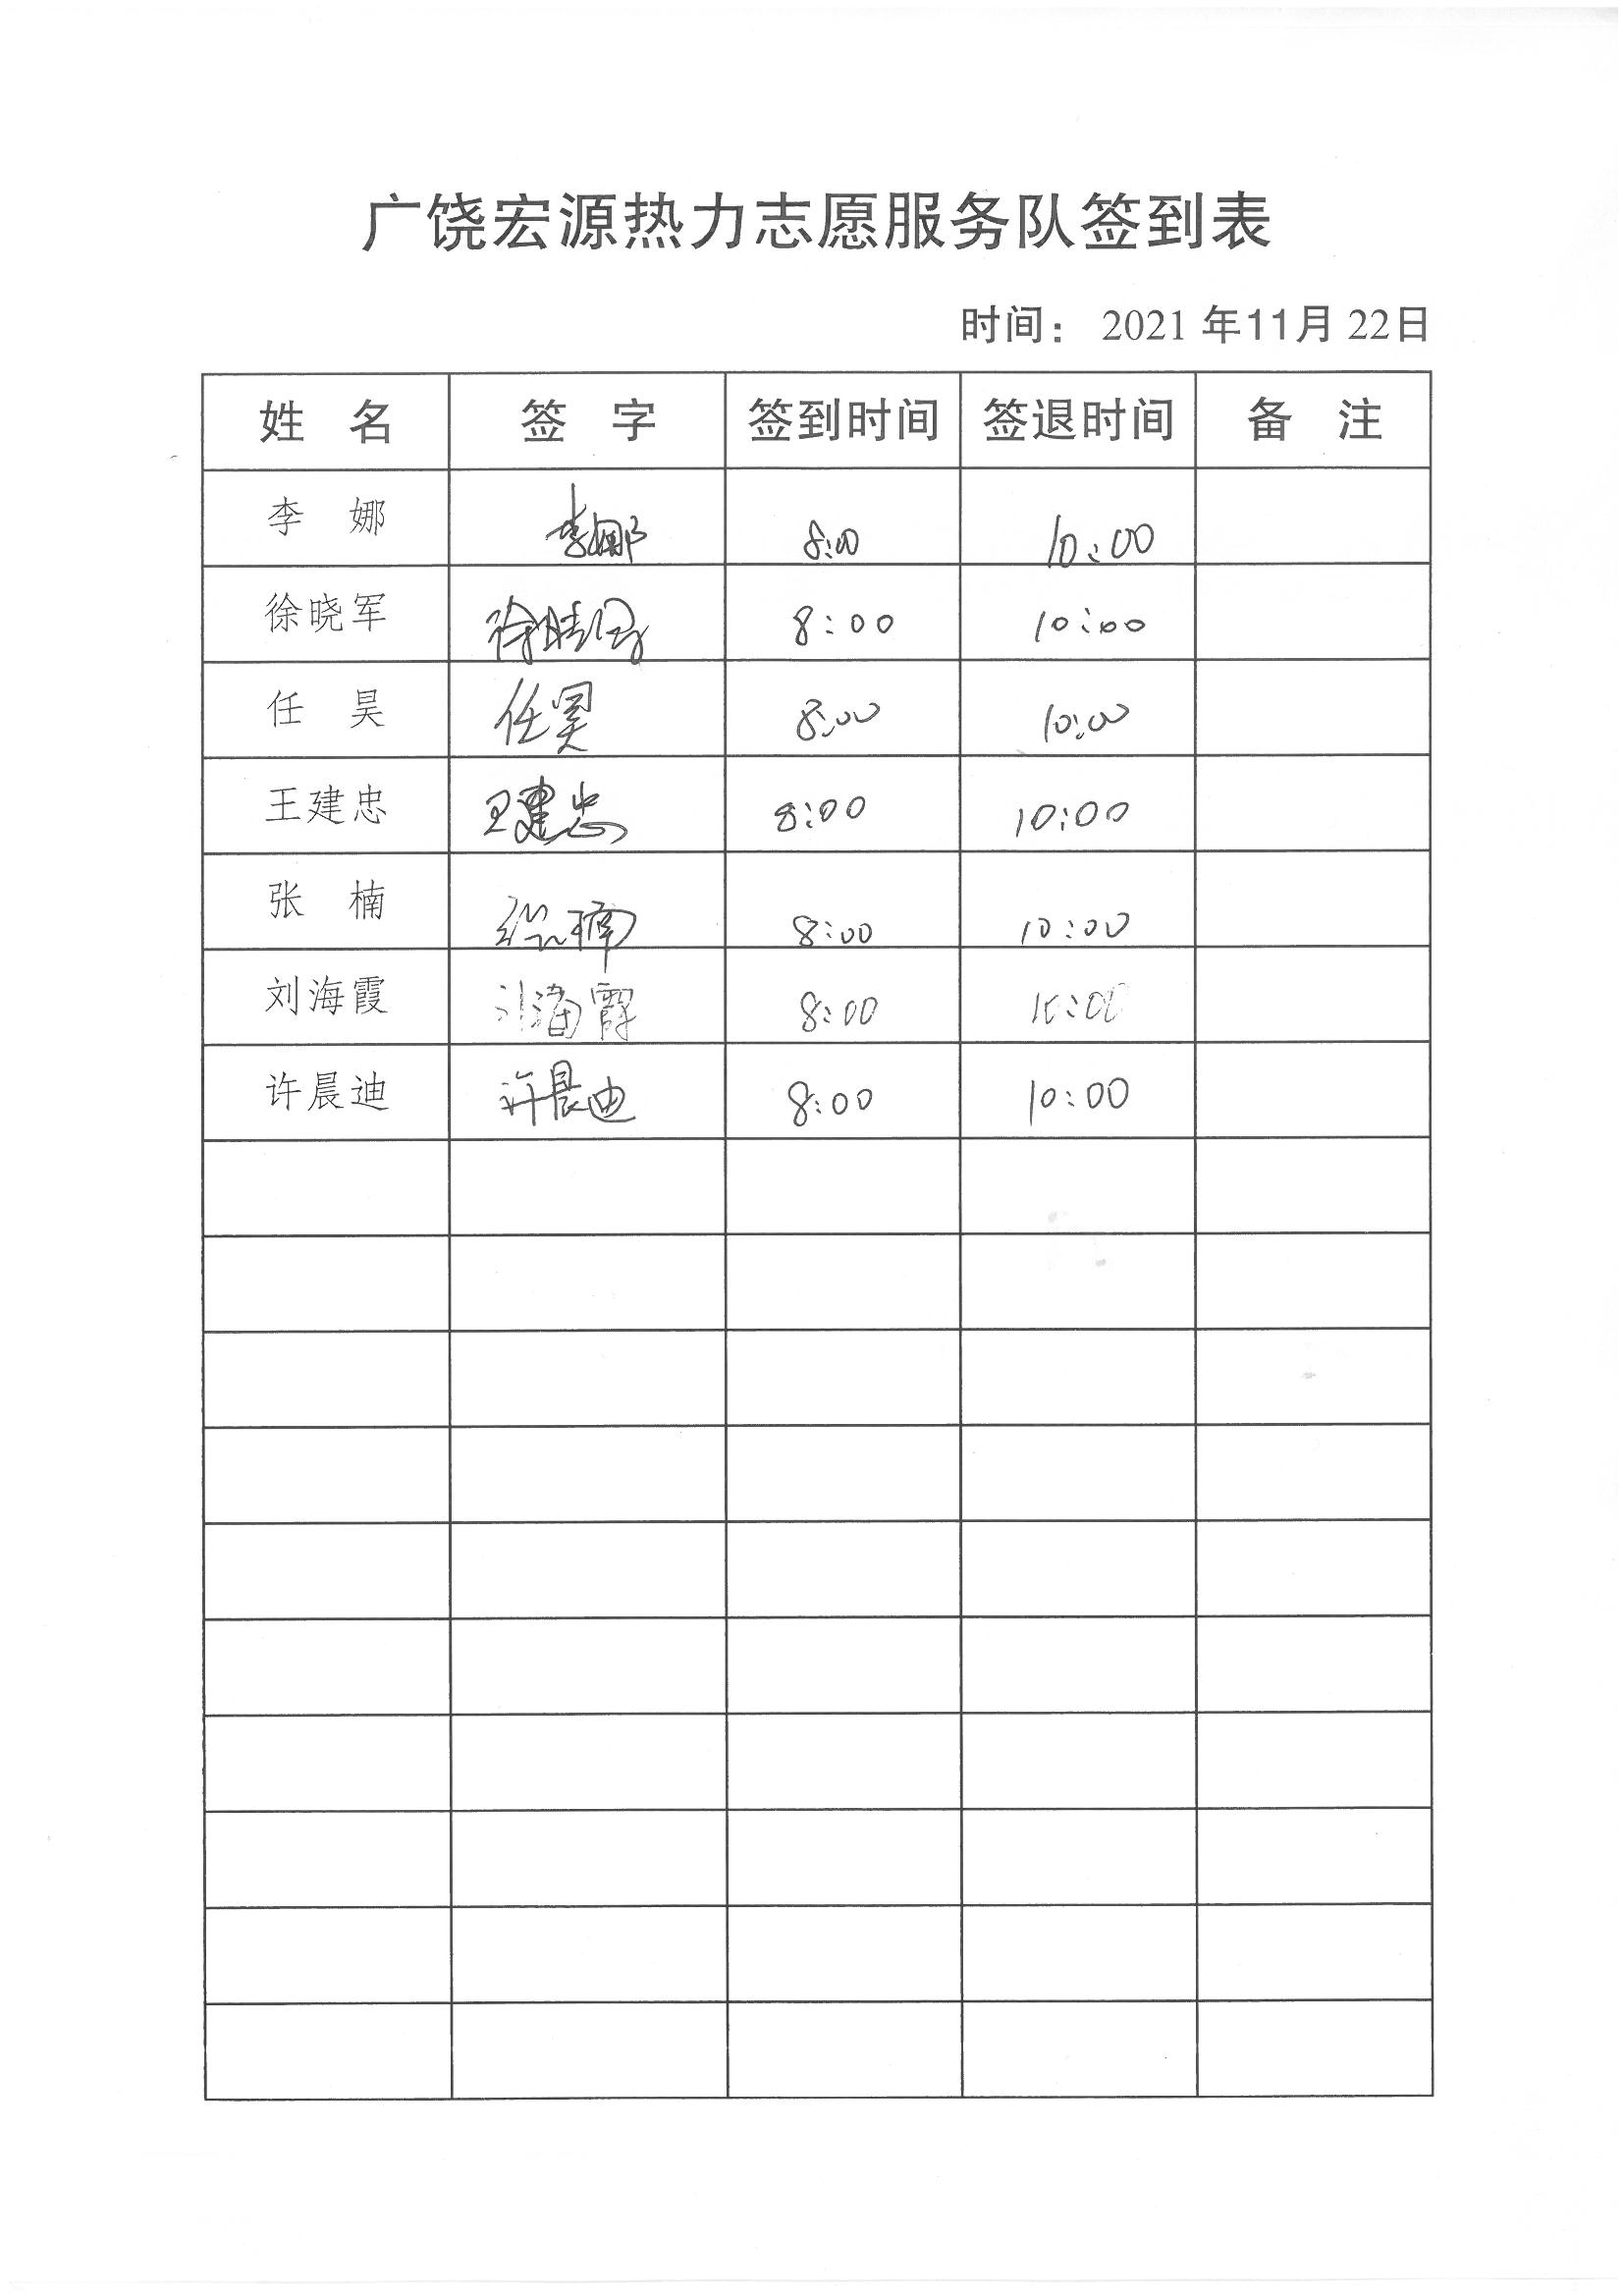 广饶宏源热力志愿服务队签到表
时间： 2021 年11月 22日
姓 名 签 字 签到时间 签退时间 备 注
李 娜 李娜 8:00 10:00
徐晓军 徐晓军 8:00 10:00
任 昊 任昊 8:00 10:00
王建忠 王建忠 8:00 10:00
张 楠 张楠 8:00 10:00
刘海霞 刘海霞 8:00 10:00
许晨迪 许晨迪 8:00 10:00